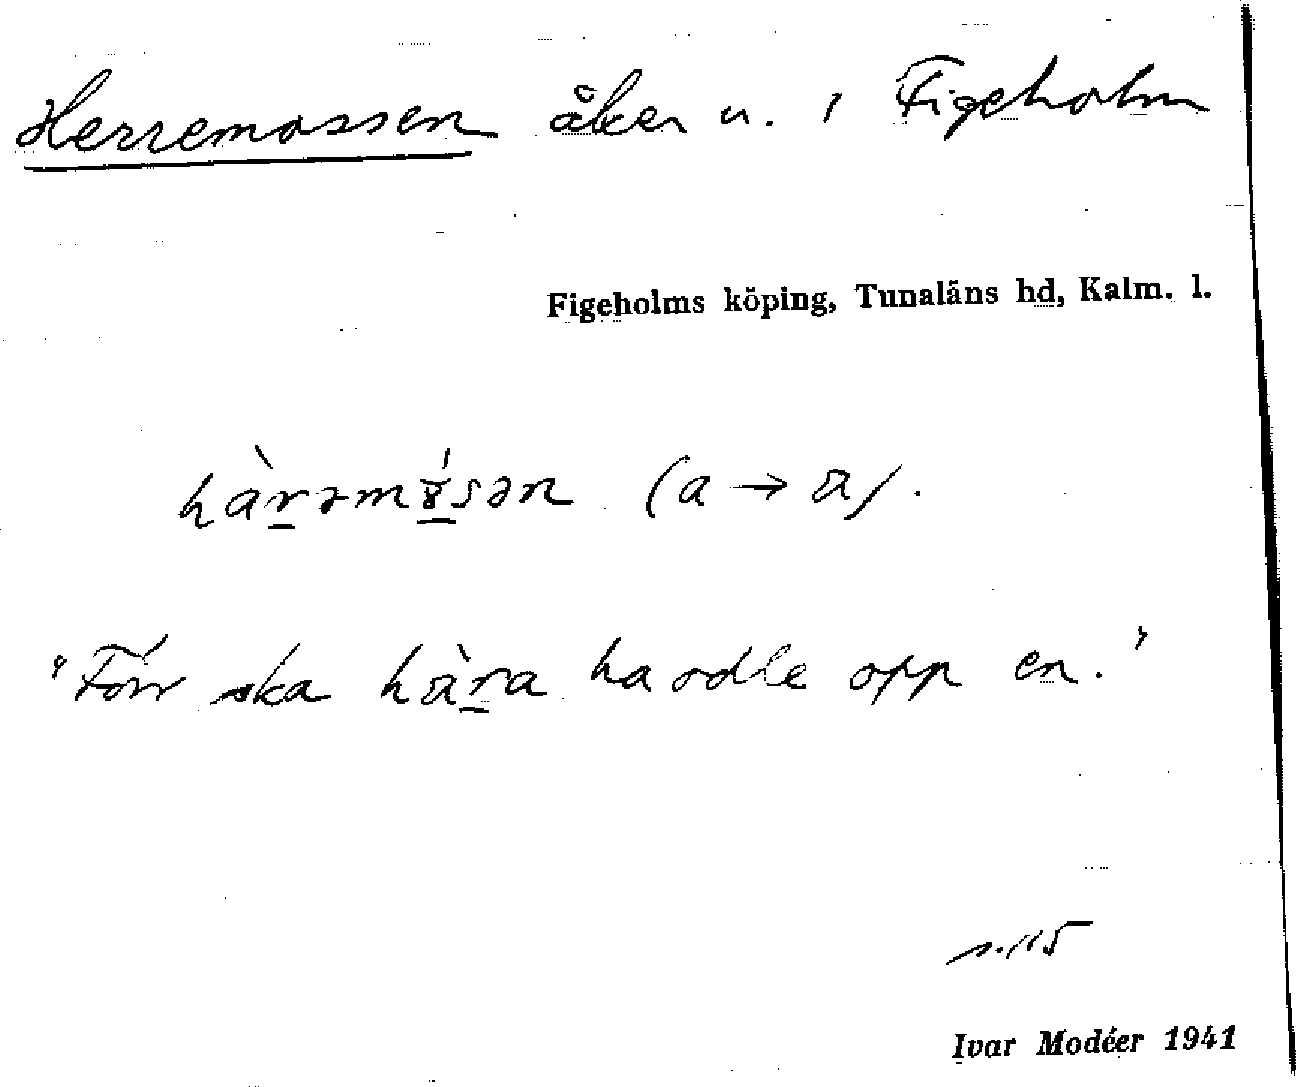 Herremossen åker n. i Figeholm
Figeholms köping, Tunaläns hd, Kalm. l.
hàrəmɤ́sən (a → a).
"Förr ska hàra ha odle opp en."
s. 115
Ivar Modéer 1941